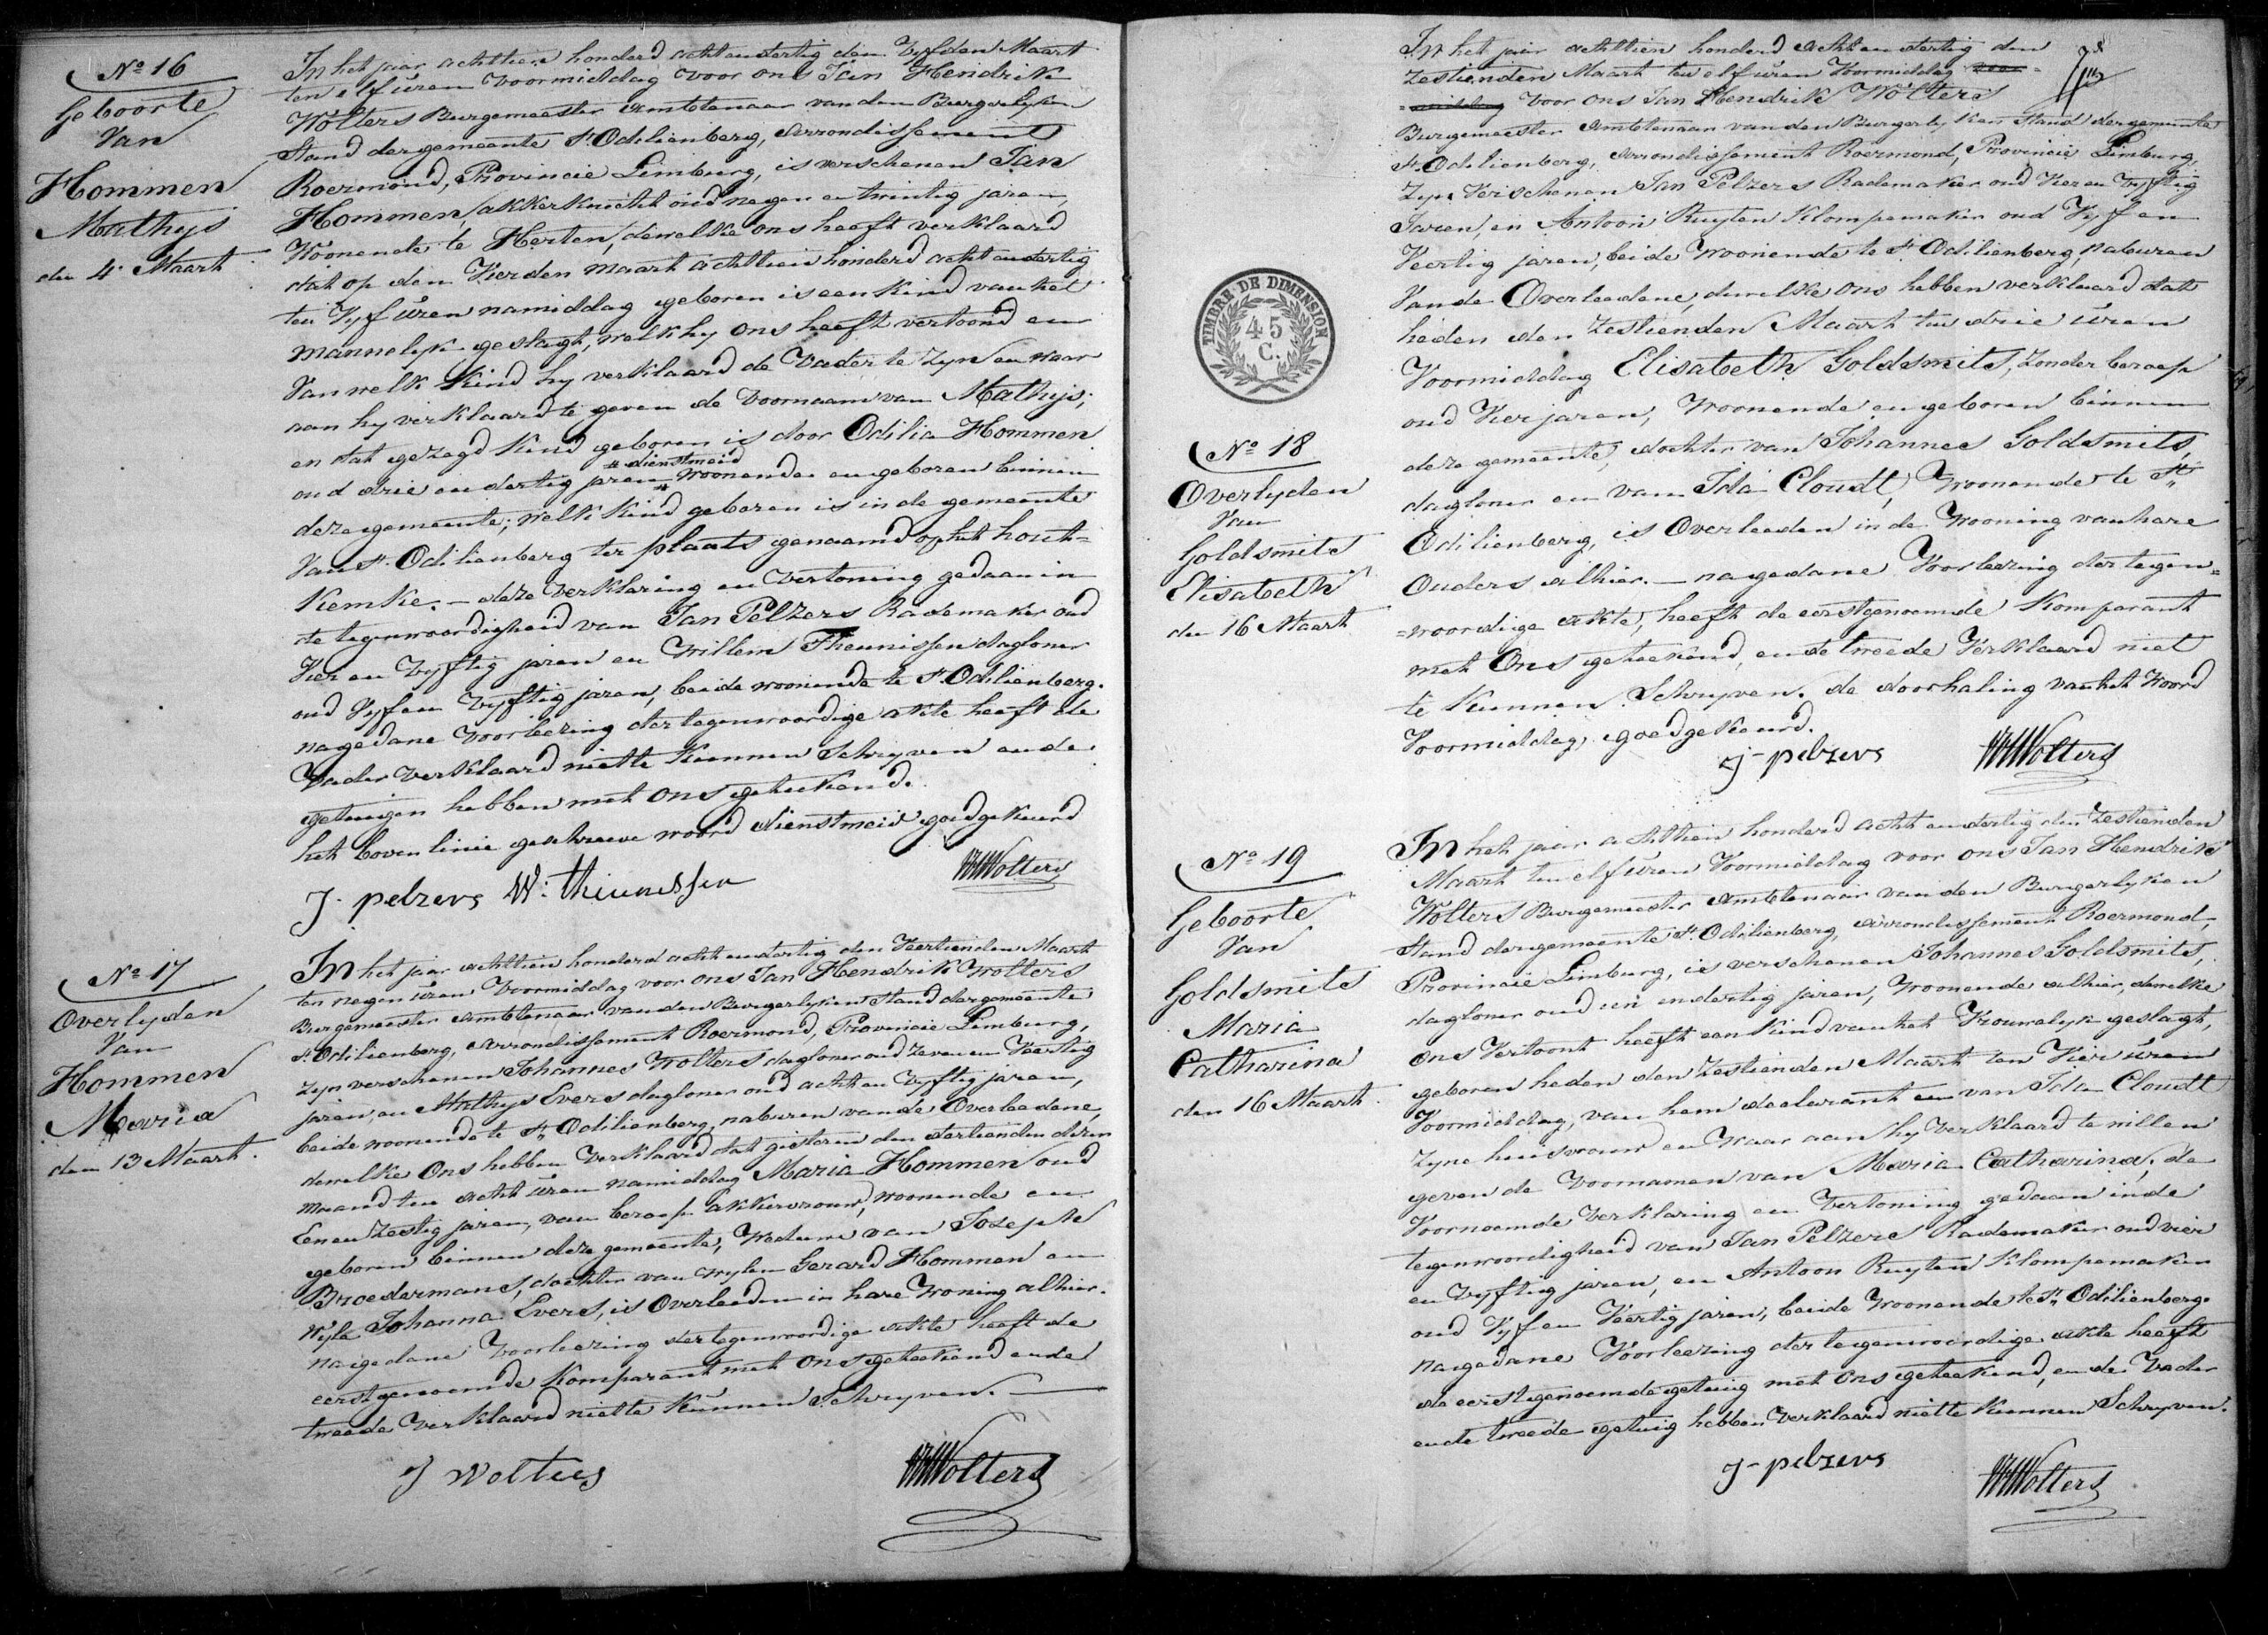 Nº 16
Geboorte
Van
Hommen
Mathijs
den 4 Maart
In het jaar achttien honderd achtendertig den Vyfden Maart
ten elf uren voormiddag voor ons Jan Hendrik
Wolters Burgemeester Ambtenaar van den Burgerlyken
Stand der gemeente St Odilienberg, Arrondissement
Roermond, Provincie Limburg, is verschenen Jan
Hommen, akkerknecht oud negen en twintig jaren,
Woonende te Herten, dewelke ons heeft verklaard
dat op den Vierden Maart achttien honderd acht en dertig
ten Vyf uren namiddag geboren is een kind van het
mannelyk geslagt, welk hy ons heeft vertoond en
Van welk Kind hy verklaard de Vader te zyn en waar
aan hy verklaard te geven de Voornaam van Mathijs;
en dat gezegd Kind geboren is door Odilia Hommen
# dienstmeid
oud drie en dertig jaren # woonende en geboren binnen
deze gemeente; welk Kind geboren is in de gemeente
Van St Odilienberg ter plaats genaamd op het hout=
Kemke. — deze Verklaring en Vertoning gedaan in
de tegenwoordigheid van Jan Pelzers Rademaker oud
Vier en Vyftig jaren en Willem Theunissen dagloner
oud Vyf en Vyftig jaren, beide woonende te St Odilienberg.
na gedane Voorleezing der tegenwoordige akte heeft de
Vader Verklaard niet te Kunnen Schryven en de
getuigen hebben met ons geteekend.
het boven linie geschreve woord dienstmeid goedgekeurd
J. pelzers W. theunissen Wolters
Nº 17
Overlyden
Van
Hommen
Maria
den 13 Maart.
In het jaar achttien honderd acht en dertig den Veertienden Maart
ten negen uren Voormiddag voor ons Jan Hendrik Wolters
Burgemeester Ambtenaar van den Burgerlyken Stand der gemeente
St Odilienberg, Arrondissement Roermond, Provincie Limburg,
zyn verschenen Johannes Wolters dagloner oud zeven en Veertig
jaren, en Mathys Evers dagloner oud acht en Vyftig jaren,
beide woonende te St Odilienberg, naburen van de Overleedene,
dewelke Ons hebben Verklaard dat gisteren den dertienden dezer
maand ten acht uren namiddag Maria Hommen oud
Een en Zestig jaren, van beroep akkervrouw, woonende en
geboren binnen deze gemeente, Weduwe van Joseph
Broedermans, dochter van wylen Gerard Hommen en
wyle Johanna Evers, is Overleeden in hare Woning alhier.
na gedane Voorleezing der tegenwoordige akte heeft de
eerstgenoemde Komparant met ons geteekend en de
tweede Verklaard niet te Kunnen Schryven. —
J Wolters Wolters
In het jaar achttien honderd acht en dertig den
Zestienden Maart ten elf uren Voormiddag
Voor ons Jan Hendrik Wolters
Burgemeester Ambtenaar van den Burgerlyken Stand der gemeente
St Odilienberg, Arrondissement Roermond, Provincie Limburg,
Zyn Verschenen Jan Pelzers Rademaker oud Vier en Vyftig
Jaren, en Antoon Ruyten Klompemaker oud Vyf en
Veertig jaren, beide Woonende te St Odilienberg, naburen
Van de Overleedene, dewelke Ons hebben verklaard dat
heden den Zestienden Maart ten drie uren
Voormiddag Elisabeth Goldsmits, Zonder beroep
oud Vier jaren, Woonende en geboren binnen
deze gemeente, dochter van Johannes Goldsmits,
dagloner en van Ida Cloudt, Woonende te St
Odilienberg, is Overleeden in de Wooning van hare
Ouders alhier. — na gedane Voorleezing der tegen=
=woordige akte, heeft de eerstgenoemde Komparant
met Ons geteekend, en de tweede Verklaard niet
te Kunnen Schryven. de doorhaling van het Woord
Voormiddag, goedgekeurd.
J- pelzers Wolters
TIMBRE DE DIMENSION
45
C.
Nº 18
Overlyden
Van
Goldsmits
Elisabeth
den 16 Maart
Nº 19
Geboorte
Van
Goldsmits
Maria
Catharina
den 16 Maart.
In het jaar achttien honderd acht en dertig den Zestienden
Maart ten elf uren Voormiddag voor ons Jan Hendrik
Wolters Burgemeester Ambtenaar van den Burgerlyken
Stand der gemeente St Odilienberg, Arrondissement Roermond,
Provincie Limburg, is verschenen Johannes Goldsmits,
dagloner oud een en dertig jaren, Woonende alhier, dewelke
Ons Vertoont heeft een Kind van het Vrouwelyk geslagt,
geboren heden den Zestienden Maart ten Vier uren
Voormiddag, van hem declarant en van Ida Cloudt
Zyne huisvrouw en Waar aan hy Verklaard te willen
geven de Voornamen van Maria Catharina; de
Voornoemde Verklaring en Vertoning gedaan in de
tegenwoordigheid van Jan Pelzers Rademaker oud vier
en Vyftig jaren, en Antoon Ruyten Klompemaker
oud Vyf en Veertig jaren, beide Woonende te St Odilienberg.
na gedane Voorleezing der tegenwoordige akte heeft
de eerstgenoemde getuig met ons geteekend, en de Vader
en de tweede getuig hebben Verklaard niet te Kunnen Schryven.
J- pelzers Wolters